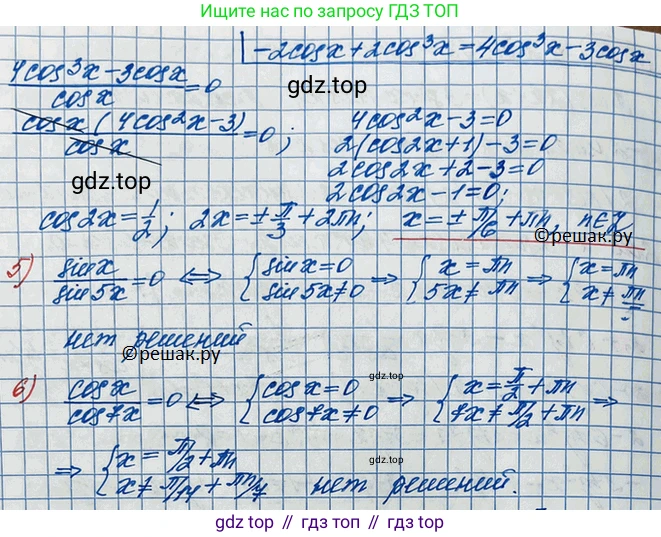 Ищите нас по запросу ГДЗ ТОП
-2cosx+2cos³x=4cos³x-3cosx
4cos³x-3cosx / cosx = 0
gdz.top
cosx(4cos²x-3) / cosx = 0;
4cos²x-3=0
2(cos2x+1)-3=0
gdz.top
2cos2x+2-3=0
2cos2x-1=0;
cos2x=1/2; 2x=±π/3+2πn; x=±π/6+πn, n∈Z
©решак.ру
5) sinx / sin5x = 0 ⟺ { sinx=0 sin5x≠0 ⇒ { x=πn 5x≠πn ⇒ { x=πn x≠πn/5
нет решений
©решак.ру
gdz.top
6) cosx / cos7x = 0 ⟺ { cosx=0 cos7x≠0 ⇒ { x=π/2+πn 7x≠π/2+πn ⇒
gdz.top
⇒ { x=π/2+πn x≠π/14+πn/7 нет решений.
gdz.top // gdz.top // gdz.top // gdz.top